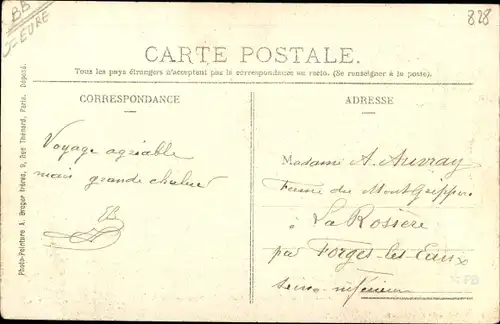 BB
J-EURE
828
CARTE POSTALE.
Tous les pays étrangers n'acceptent pas la correspondance au recto. (Se renseigner à la poste).
CORRESPONDANCE
ADRESSE
Voyage agréable
mais grande chaleur
Madame A. Auvray
Ferme du Mont Grippon
à La Rosière
par Forges-les-Eaux
Seine-inférieure
Photo-Peinture A. Breger Frères, 9, Rue Thénard, Paris. Déposé.